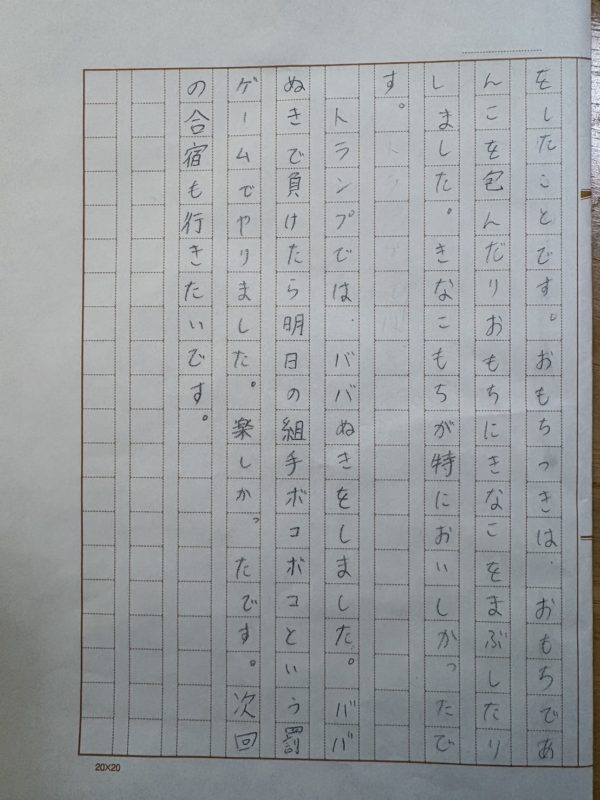 をしたことです。おもちつきは、おもちであ
んこを包んだりおもちにきなこをまぶしたり
しました。きなこもちが特においしかったで
す。
トランプでは、ババぬきをしました。ババ
ぬきで負けたら明日の組手ボコボコという罰
ゲームでやりました。楽しかったです。次回
の合宿も行きたいです。
20×20